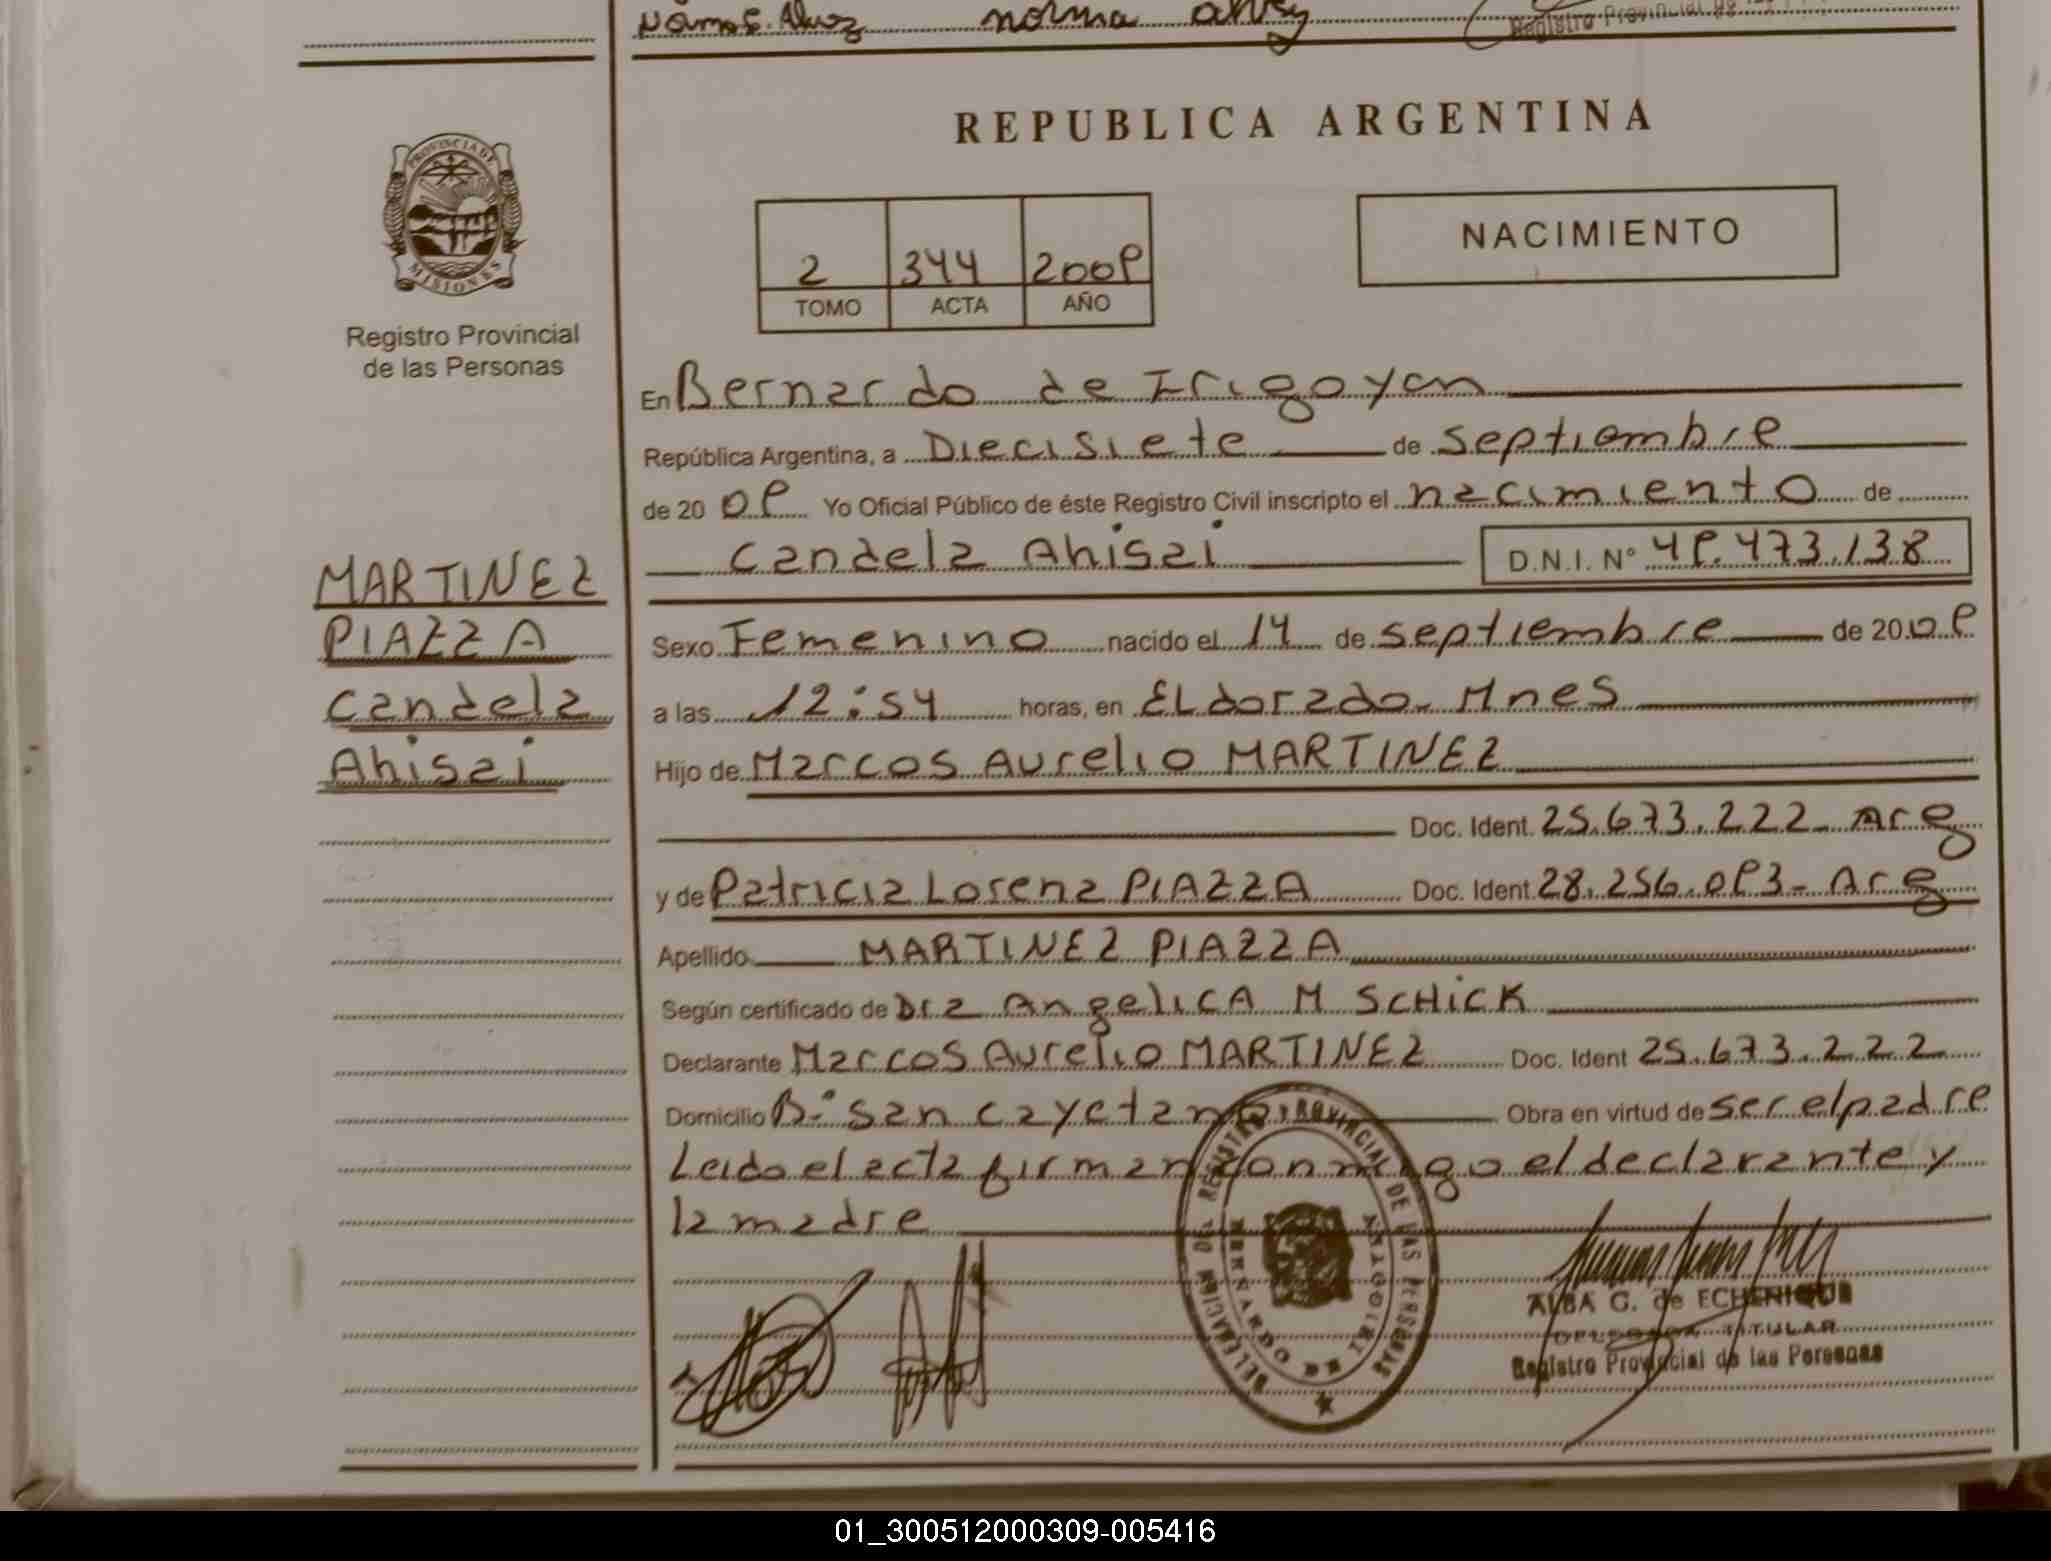 norma alvez
Registro Provincial de las
PROVINCIA DE
MISIONES
Registro Provincial
de las Personas
REPUBLICA ARGENTINA
2 344 2009
TOMO ACTA AÑO
NACIMIENTO
En Bernardo de Irigoyen
República Argentina, a Diecisiete de septiembre
de 20 09 Yo Oficial Público de éste Registro Civil inscripto el nacimiento de
Candela Ahisai D.N.I. N° 49.473.138
MARTINEZ
PIAZZA
Candela
Ahisai
Sexo Femenino nacido el 14 de septiembre de 20 09
a las 12:54 horas, en Eldorado - Mnes
Hijo de Marcos Aurelio MARTINEZ
Doc. Ident. 25.673.222 - Arg
y de Patricia Lorena PIAZZA Doc. Ident. 28.256.093 - Arg
Apellido MARTINEZ PIAZZA
Según certificado de Dra Angelica M SCHICK
Declarante Marcos Aurelio MARTINEZ Doc. Ident 25.673.222
Domicilio B° San Cayetano Obra en virtud de ser el padre
Leido el acta firman conmigo el declarante y
la madre
DELEGACION DEL REGISTRO PROVINCIAL DE LAS PERSONAS
BERNARDO DE IRIGOYEN
ALBA G. de ECHENIQUE
DELEGADA TITULAR
Registro Provincial de las Personas
01_300512000309-005416